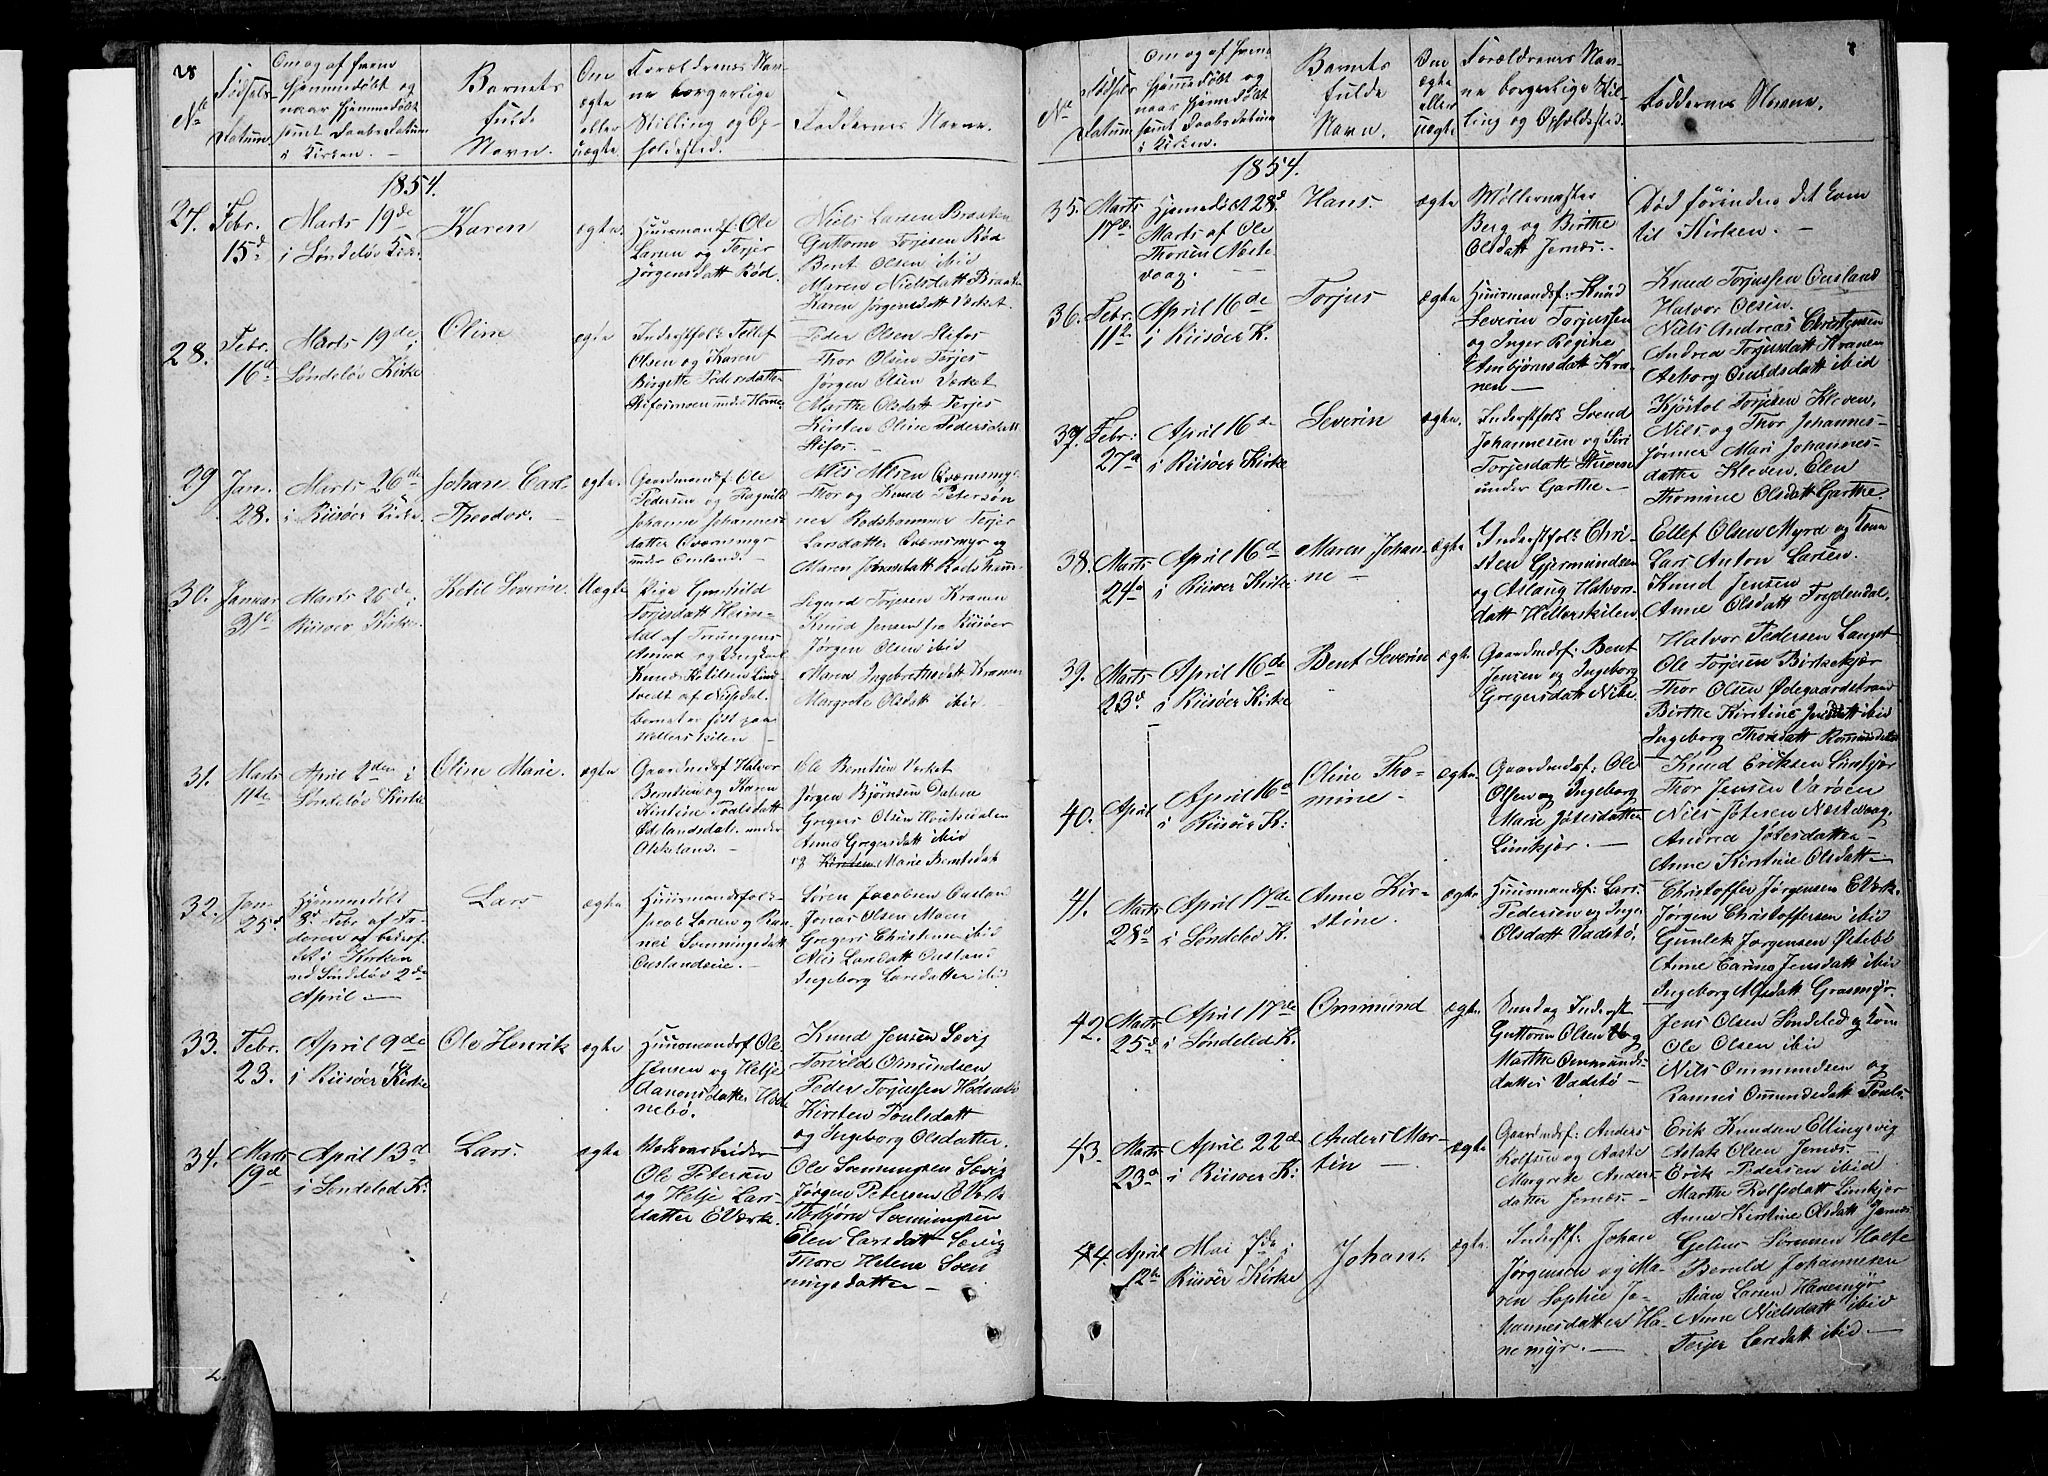 28
No
Fødsels-
Datum.
Om og af hvem
hjemmedøbt og
naar hjemmedøbt
samt Daabsdatum
i Kirken. —
Barnets
fulde
Navn.
Om
ægte
eller
uægte.
Forældrenes Nav-
ne borgerlige
Stilling og Op-
holdssted.
Faddernes Navne.
1854.
27.
Febr.
15d
Marts 19de
i Søndeløv Kirke
Karen
ægte.
Huusmandsf: Ole
Larsen og Terjer
Jørgensdatt Rød.
Niels Larsen Braaten
Guttorm Torjesen Rød
Bent Olsen ibid
Maren Nielsdatt Braaten
Karen Jørgensdatt Værket.
28.
Febr.
16d
Marts 19de i
Søndeløv Kirke
Oline
ægte
Inderstfolk Tellef
Olsen og Karen
Birgitte Pedersdatter
Stifosmoen under Homme.
Peder Olsen Stifos
Thor Olsen Terjes
Jørgen Olsen Værket
Marthe Olsdatt Terjes
Kirsten Oline Pedersdatt
Stifos. —
29
Jan.
28.
Marts 26de
i Riisøer Kirke.
Johan Carl
Theodor. —
ægte.
Gaardmandsf: Ole
Pedersen og Ragnild
Johanne Johannes-
datter Qværnsmyr
under Ousland. —
Nils Nilsen Qværnsmyr
Thor og Knud Petersøn-
ner Rødshammer Terjer
Larsdatter Qværnsmyr og
Maren Jonasdatt Rødsham-
30.
Januar
31te
Marts 26de i
Riisøer Kirke.
Ketil Severin.
Uægte
Pige Gunhild
Torjesdatt Heim-
dal af Tromøens
Annex og Ungkarl
Knud Ketilsen Lind-
tvedt af Nissedal.
Barnet er født paa
Hellerskilen —
Sigurd Torjesen Kranen
Knud Jensen fra Riisøer
Jørgen Olsen ibid
Maren Ingebrethsdatt Kranen
Margrete Olsdatt ibid —
31.
Marts
11te
April 2den i
Søndeløv Kirke
Oline Marie.
ægte
Gaardmdsf Halvor
Berntsen og Karen
Kirstine Poulsdatt
Ødelandsdal. under
Askeland. —
Ole Berntsen Værket
Jørgen Bjørnsen Dalene
Gregers Olsen Houtsedalen
Anne Gregersdatt ibid
og Kirsten Marie Berntsdatt
32.
Jan.
25d
Hjemmedøbt
8d Febr af Fa-
deren og bekræf-
tet i Kirken
ved Søndeløv 2de
April. —
Lars
ægte
Huusmandsfolk
Jacob Larsen og Ran-
nei Svenningsdatt
Ouslandseie. —
Søren Jacobsen Ousland
Jonas Olsen Moen
Gregers Christensen ibid
Alis Larsdatt Ousland
Ingeborg Larsdatter ibid
33.
Febr.
23.
April 9de
i Riisøer Kirke
Ole Henrik
ægte
Huusmandsf Ole
Jensen og Helje
Aanonsdatter Hød-
nebø.
Knud Jensen Sævig
Torvild Osmundsen
Peder Torjussen Hødnebø
Kirsten Poulsdatt
og Ingeborg Olsdatter.
34.
Marts
19d
April 13d
i Søndeled K:
Lars.
ægte
Værksarbeider
Ole Petersen
og Helje Lars-
datter E Værk.
Ole Svenningsen Sævig
Jørgen Petersen E Værk
Thorbjørn Svenningsen
Elen Larsdatt Sævig
Thore Helene Sven
ningsdatter —
No
Fødsels
Datum
Om og af hvem
hjemmedøbt og
naar hjemmedøbt
samt Daabsdatum
i Kirken.
Barnets
fulde
Navn.
Om
ægte
eller
uægte
Forældrenes Nav-
ne borgerlige Stil-
ling og Opholdssted.
Faddernes Navne.
1854.
35.
Marts
17de
Hjemmedøbt 28d
Marts af Ole
Thorsen Næste-
vaag. —
Hans.
ægte
Møllermester
Berg og Birthe
Olsdatt Jernæs. —
Død førinden det kom
til Kirken. —
36.
Febr.
11te
April 16de
i Riisøer K.
Torjus
ægte
Huusmandsf: Knud
Severin Torjussen
og Inger Regine
Ambjørnsdatt Kra-
nen —
Knud Torjussen Ousland
Halvor Olsen.
Niels Andreas Christensen
Andrea Torjusdatt Kranen
Aaborg Osuldsdatt ibid
37.
Febr:
27d
April 16de
i Riisøer Kirke
Severin
ægte.
Inderstfolk Svend
Johannesen og Siri
Torjesdatt Stuven
under Garthe. —
Kjøstol Torjesen Kleven,
Nils og Thor Johannes-
sønner Mari Johannes-
datter Kleven. Elen
Thomine Olsdatt Garthe.
38.
Marts
24d
April 16d
i Riisøer Kirke.
Maren Johan-
ne —
ægte
Inderstfolk Chri-
sten Gjermundsen
og Aslaug Halvors-
datt Hellerskilen
Ellef Olsen Myra og Kone
Lars Anton Larsen.
Knud Jensen
Anne Olsdatt Frydendal.
39.
Marts
23d
April 16de
i Riisøer Kirke
Bent Severin
ægte
Gaardmdsf: Bent
Jensen og Ingeborg
Gregersdatt Nibe.
Halvor Pedersen Lunget
Ole Torjesen Birkekjær
Thor Olsen Ødegaardstrand
Birthe Kirstine Jensdatt ibid
Ingeborg Thorsdatt
40.
April
April 16d
i Riisøer K:
Oline Tho-
mine —
ægte.
Gaardmdsf: Ole
Olsen og Ingeborg
Marie Jøtesdatter
Limkjær.
Knud Eriksen Limkjær
Thor Jensen Varøen
Nils Jøtesen Næstevaag,
Andrea Jøtesdatter —
Anne Kirstine Olsdatt —
41.
Marts
28d
April 17de
i Søndeløv K.
Anne Kir-
stine.
ægte
Huusmandsf: Lars
Pedersen og Inger
Olsdatt Vadstø.
Christoffer Jørgensen E Værk.
Jørgen Christoffersen ibid
Gunlek Jørgensen Østebø
Anne Carine Jensdatt ibid
Ingeborg Nilsdatt Grasmyr.
42.
Marts
25d
April 17de
i Søndeled K.
Ommund
ægte.
Inderst
Guttorm Olsen og
Marthe Ommunds-
datter Vadstø —
Jens Olsen Søndeled og Kone
Ole Olsen ibid
Nils Ommundsen og
Rannei Ommundsdatt
43.
Marts
23d
April 22d
i Riisøer K:
Anders Mar-
tin —
ægte
Gaardmdsf: Anders
Rolfsen og Aaste
Margrete Anders-
datter Jernæs —
Erik Knudsen Ellingsvig
Aslak Olsen Jernæs
Erik Pedersen ibid
Marthe Rolfsdatt Limkjær
Anne Kirstine Olsdatt Jernæs
44.
April
12te
Mai 7de i
Riisøer Kirke
Johan.
ægte.
Inderstf: Johan
Jørgensen og Ma-
ren Sophie Jo-
hannesdatter Ha-
nemyr. —
Gelius Sørensen Holte
Berulf Johannesen
Stian Larsen Hanemyr
Anne Nielsdatt ibid
Terjer Larsdatt ibid —